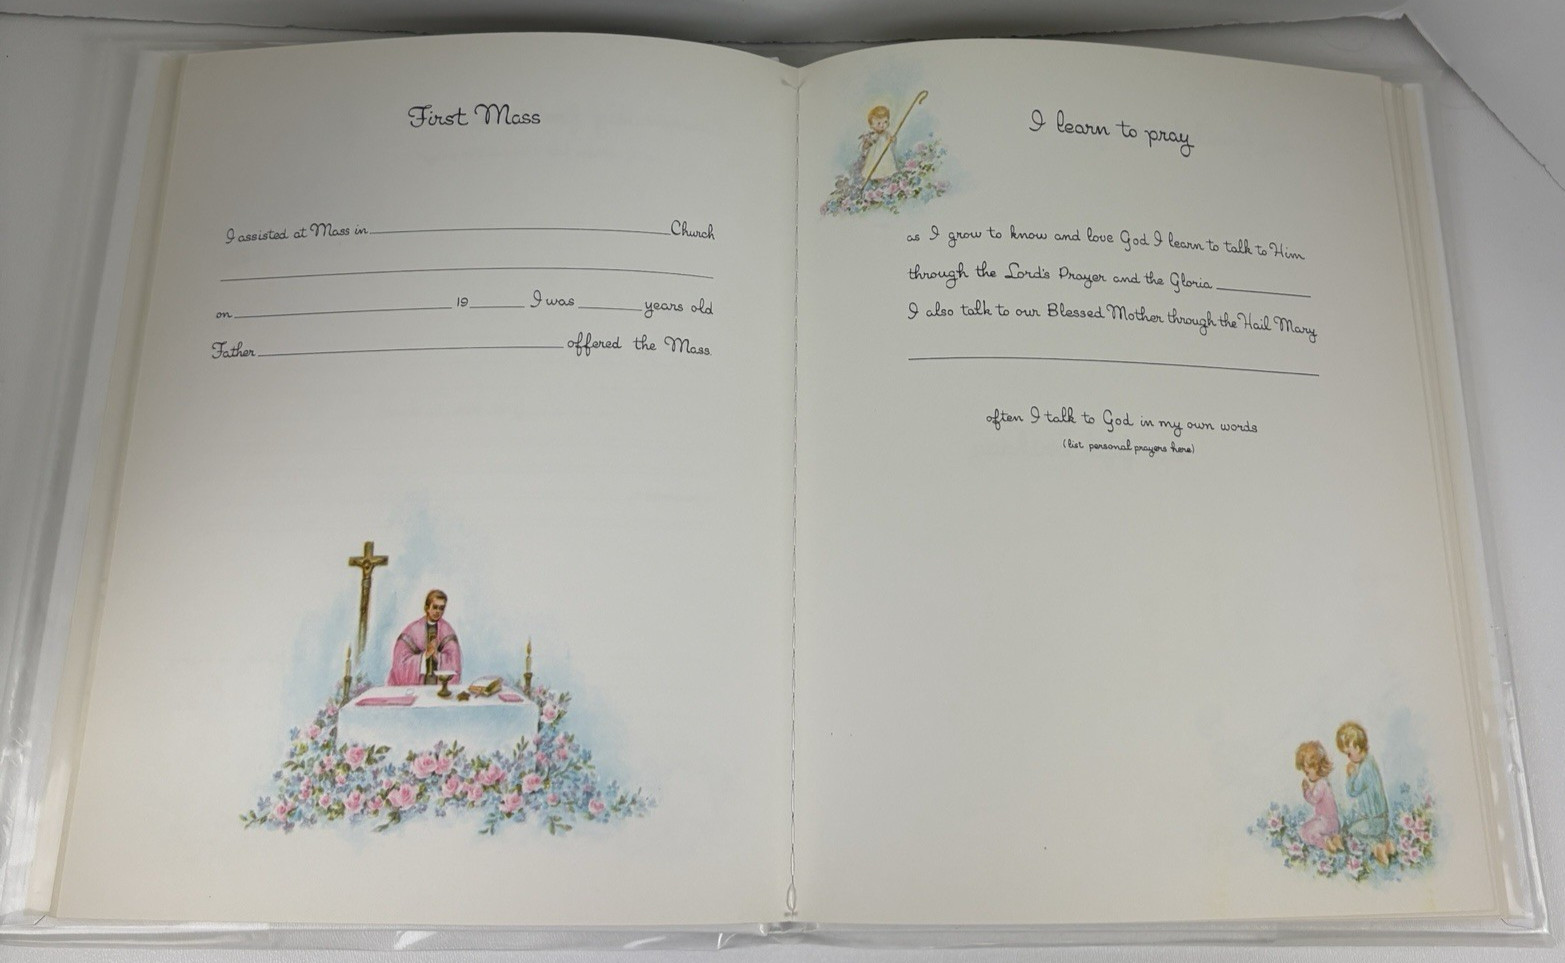 First Mass
I assisted at Mass in ____ Church
on ____ 19 ____ I was ____ years old
Father ____ offered the Mass.
I learn to pray
as I grow to know and love God I learn to talk to Him
through the Lord's Prayer and the Gloria ____
I also talk to our Blessed Mother through the Hail Mary
often I talk to God in my own words
(list personal prayers here)